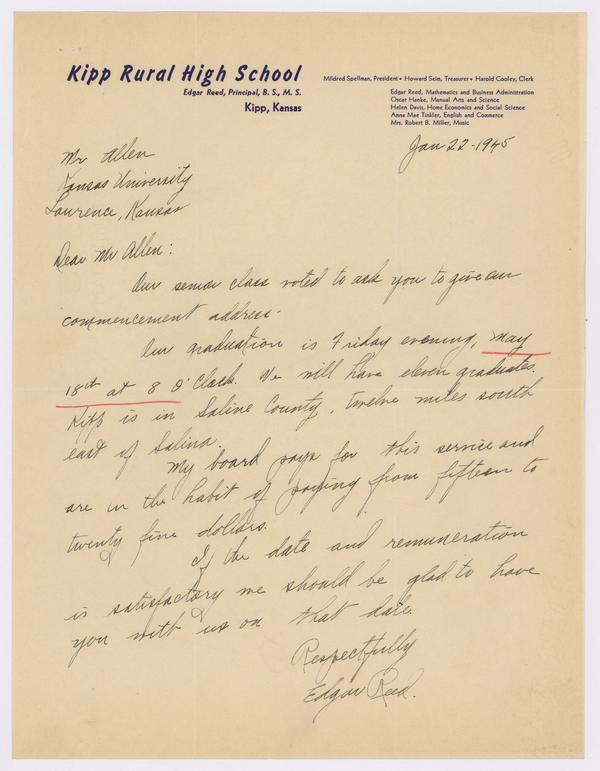 Kipp Rural High School
Edgar Reed, Principal, B. S., M. S.
Kipp, Kansas
Mildred Spellman, President • Howard Seim, Treasurer • Harold Cooley, Clerk
Edgar Reed, Mathematics and Business Administration
Oscar Hanke, Manual Arts and Science
Helen Davis, Home Economics and Social Science
Anna Mae Tinkler, English and Commerce
Mrs. Robert B. Miller, Music
Jan 22-1945
Mr Allen
Kansas University
Lawrence, Kansas
Dear Mr Allen:
Our senior class voted to ask you to give our
commencement address.
Our graduation is Friday evening, May
18th at 8 O'Clock. We will have eleven graduates.
Kipp is in Saline County, twelve miles south
east of Salina.
My board pays for this service and
are in the habit of paying from fifteen to
twenty five dollars.
If the date and remuneration
is satisfactory we should be glad to have
you with us on that date.
Respectfully
Edgar Reed.